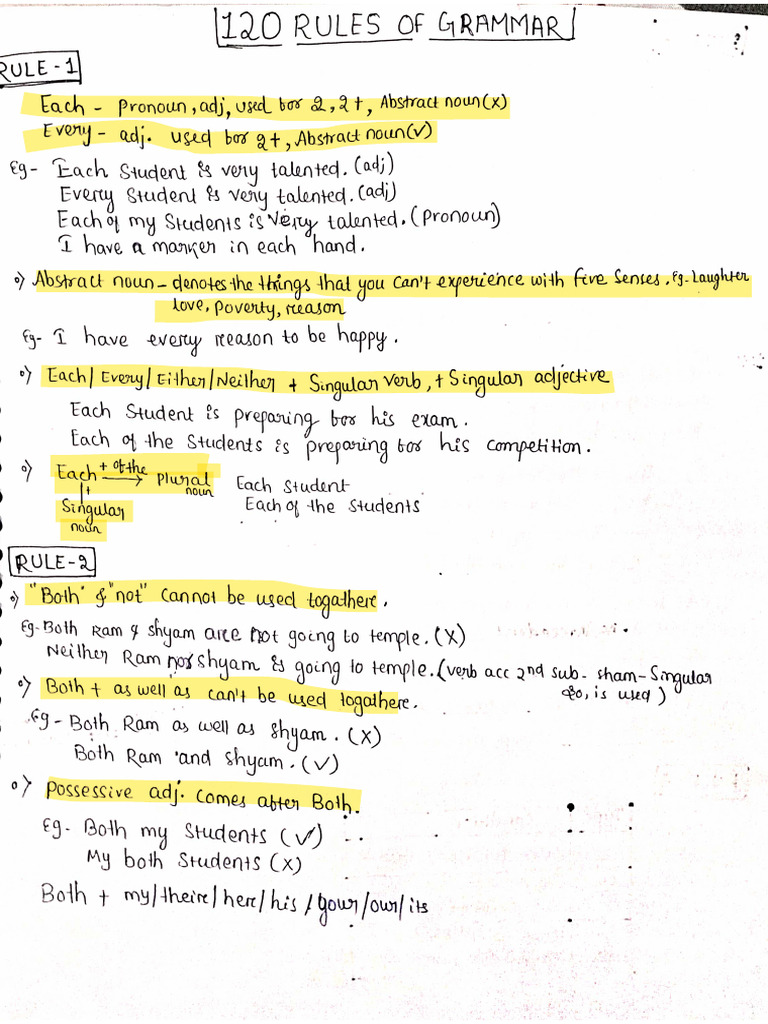 120 RULES OF GRAMMAR
RULE-1
Each - Pronoun, adj, used for 2, 2+, Abstract noun(x)
Every - adj. used for 2+, Abstract noun(√)
Eg- Each Student is very talented. (adj)
Every Student is very talented. (adj)
Each of my Students is very talented. (Pronoun)
I have a marker in each hand.
Abstract noun - denotes the things that you can't experience with five senses. Eg- Laughter
love, Poverty, reason
Eg- I have every reason to be happy.
Each/Every/Either/Neither + Singular verb, + Singular adjective
Each Student is preparing for his exam.
Each of the Students is preparing for his competition.
Each + of the → Plural noun Each Student
+ Singular noun Each of the Students
RULE-2
"Both" & "not" cannot be used togathere.
Eg- Both Ram & Shyam are not going to temple. (X)
Neither Ram nor Shyam is going to temple. (verb acc 2nd sub - sham - Singular
so, is used)
Both + as well as can't be used togathere.
Eg - Both Ram as well as Shyam. (X)
Both Ram and Shyam. (√)
Possessive adj. comes after Both.
Eg- Both my Students (√)
My both Students (X)
Both + my/theire/here/his/your/our/its